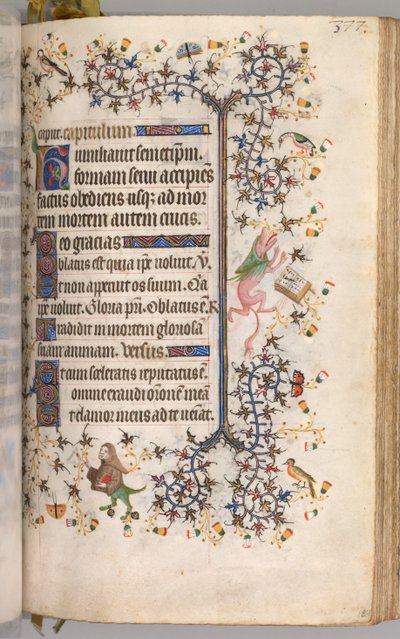 377.
caput. capitulum
Humiliavit semetip̄m.
formam servi accipiēs
factus obediens usq; ad mor
tem mortem autem crucis.
Deo gracias
Oblatus est quia ip̄e voluit. V.
Et non apperuit os suum. Q̄a
ip̄e voluit. Gloria pr̄i. Oblatus ē. R
Tradidit in mortem gloriosā
suam animam. Versus.
Et cum sceleratis reputatus ē.
Domine exaudi or̄one meā
Et clamor meus ad te veniat.